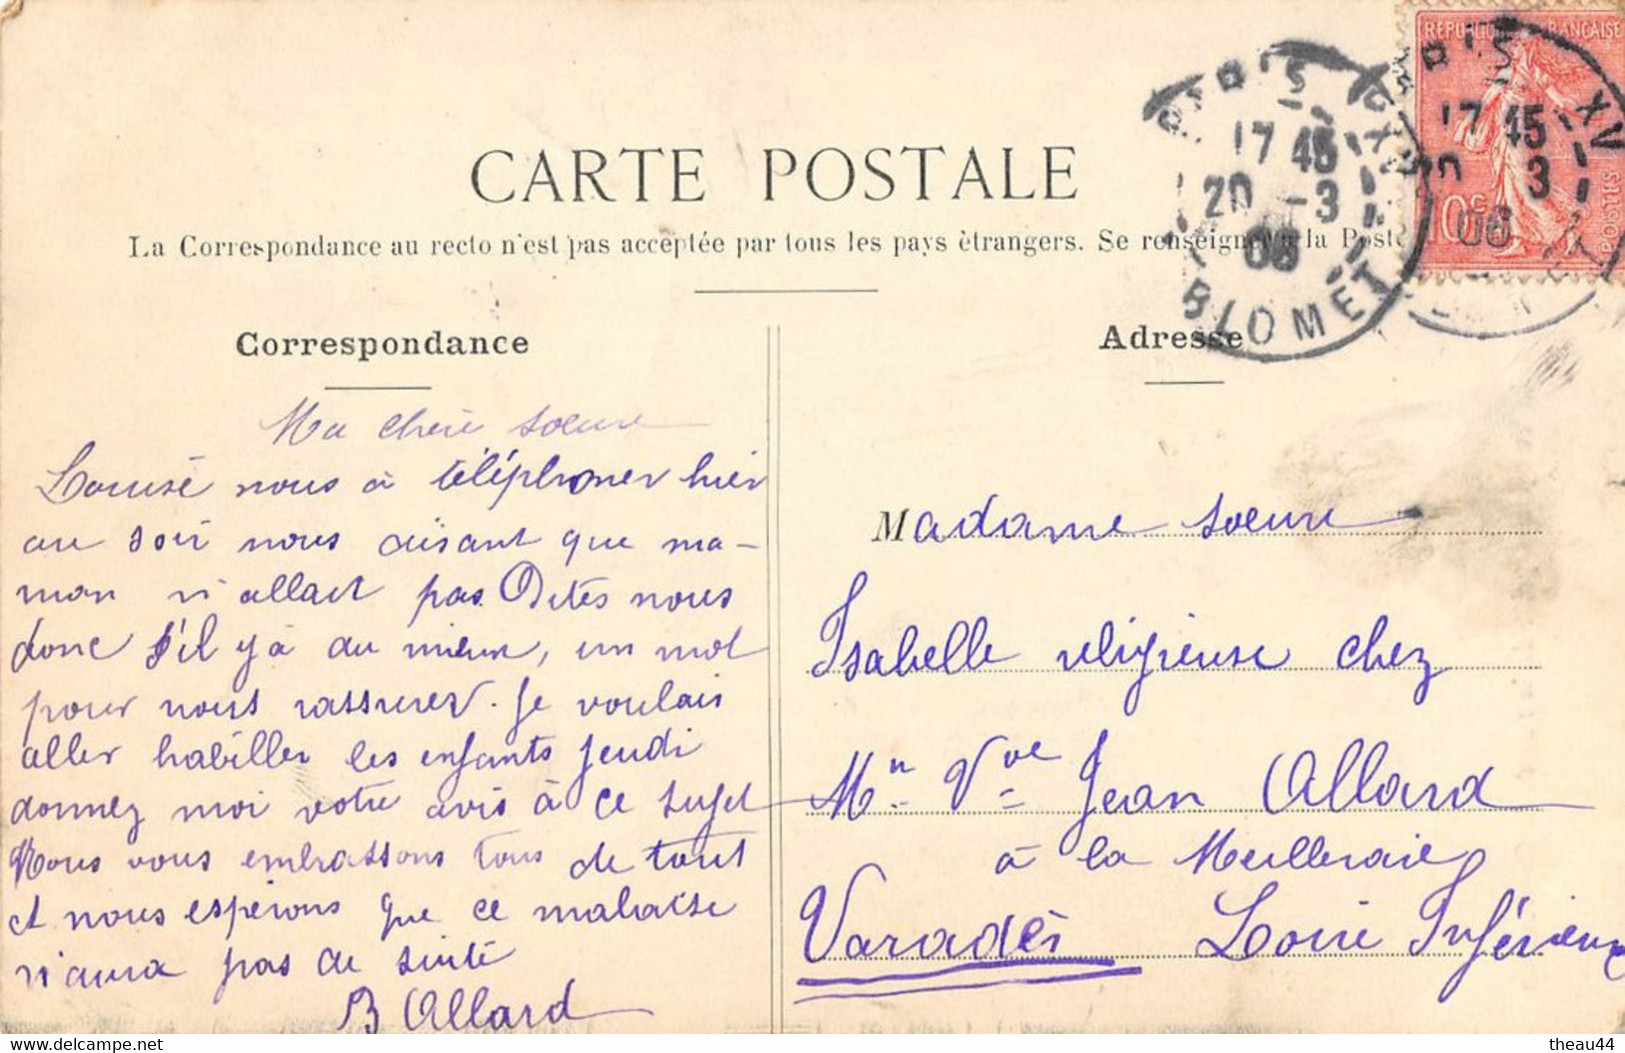 CARTE POSTALE
La Correspondance au recto n'est pas acceptée par tous les pays ètrangers. Se renseigner à la Post
REPUBLIQUE FRANCAISE
10c
POSTES
PARIS XV
17 45
20 -3
06
BLOMET
PARIS XV
17 45
20 3
06
Correspondance
Ma chère soeur
Louise nous à téléphoner hier
au soir nous disant que ma-
man n'allait pas. Dites nous
donc s'il y à du mieux, un mot
pour nous rassurer. Je voulais
aller habiller les enfants jeudi
donnez moi votre avis à ce sujet
Nous vous embrassons tous de tout
et nous espérons que ce malaise
n'aura pas de suite
B Allard
Adresse
Madame soeur
Isabelle religieuse chez
Mn Vve Jean Allard
à la Meilleraie
Varadès Loire Inférieure
https://www.delcampe.net
theau44